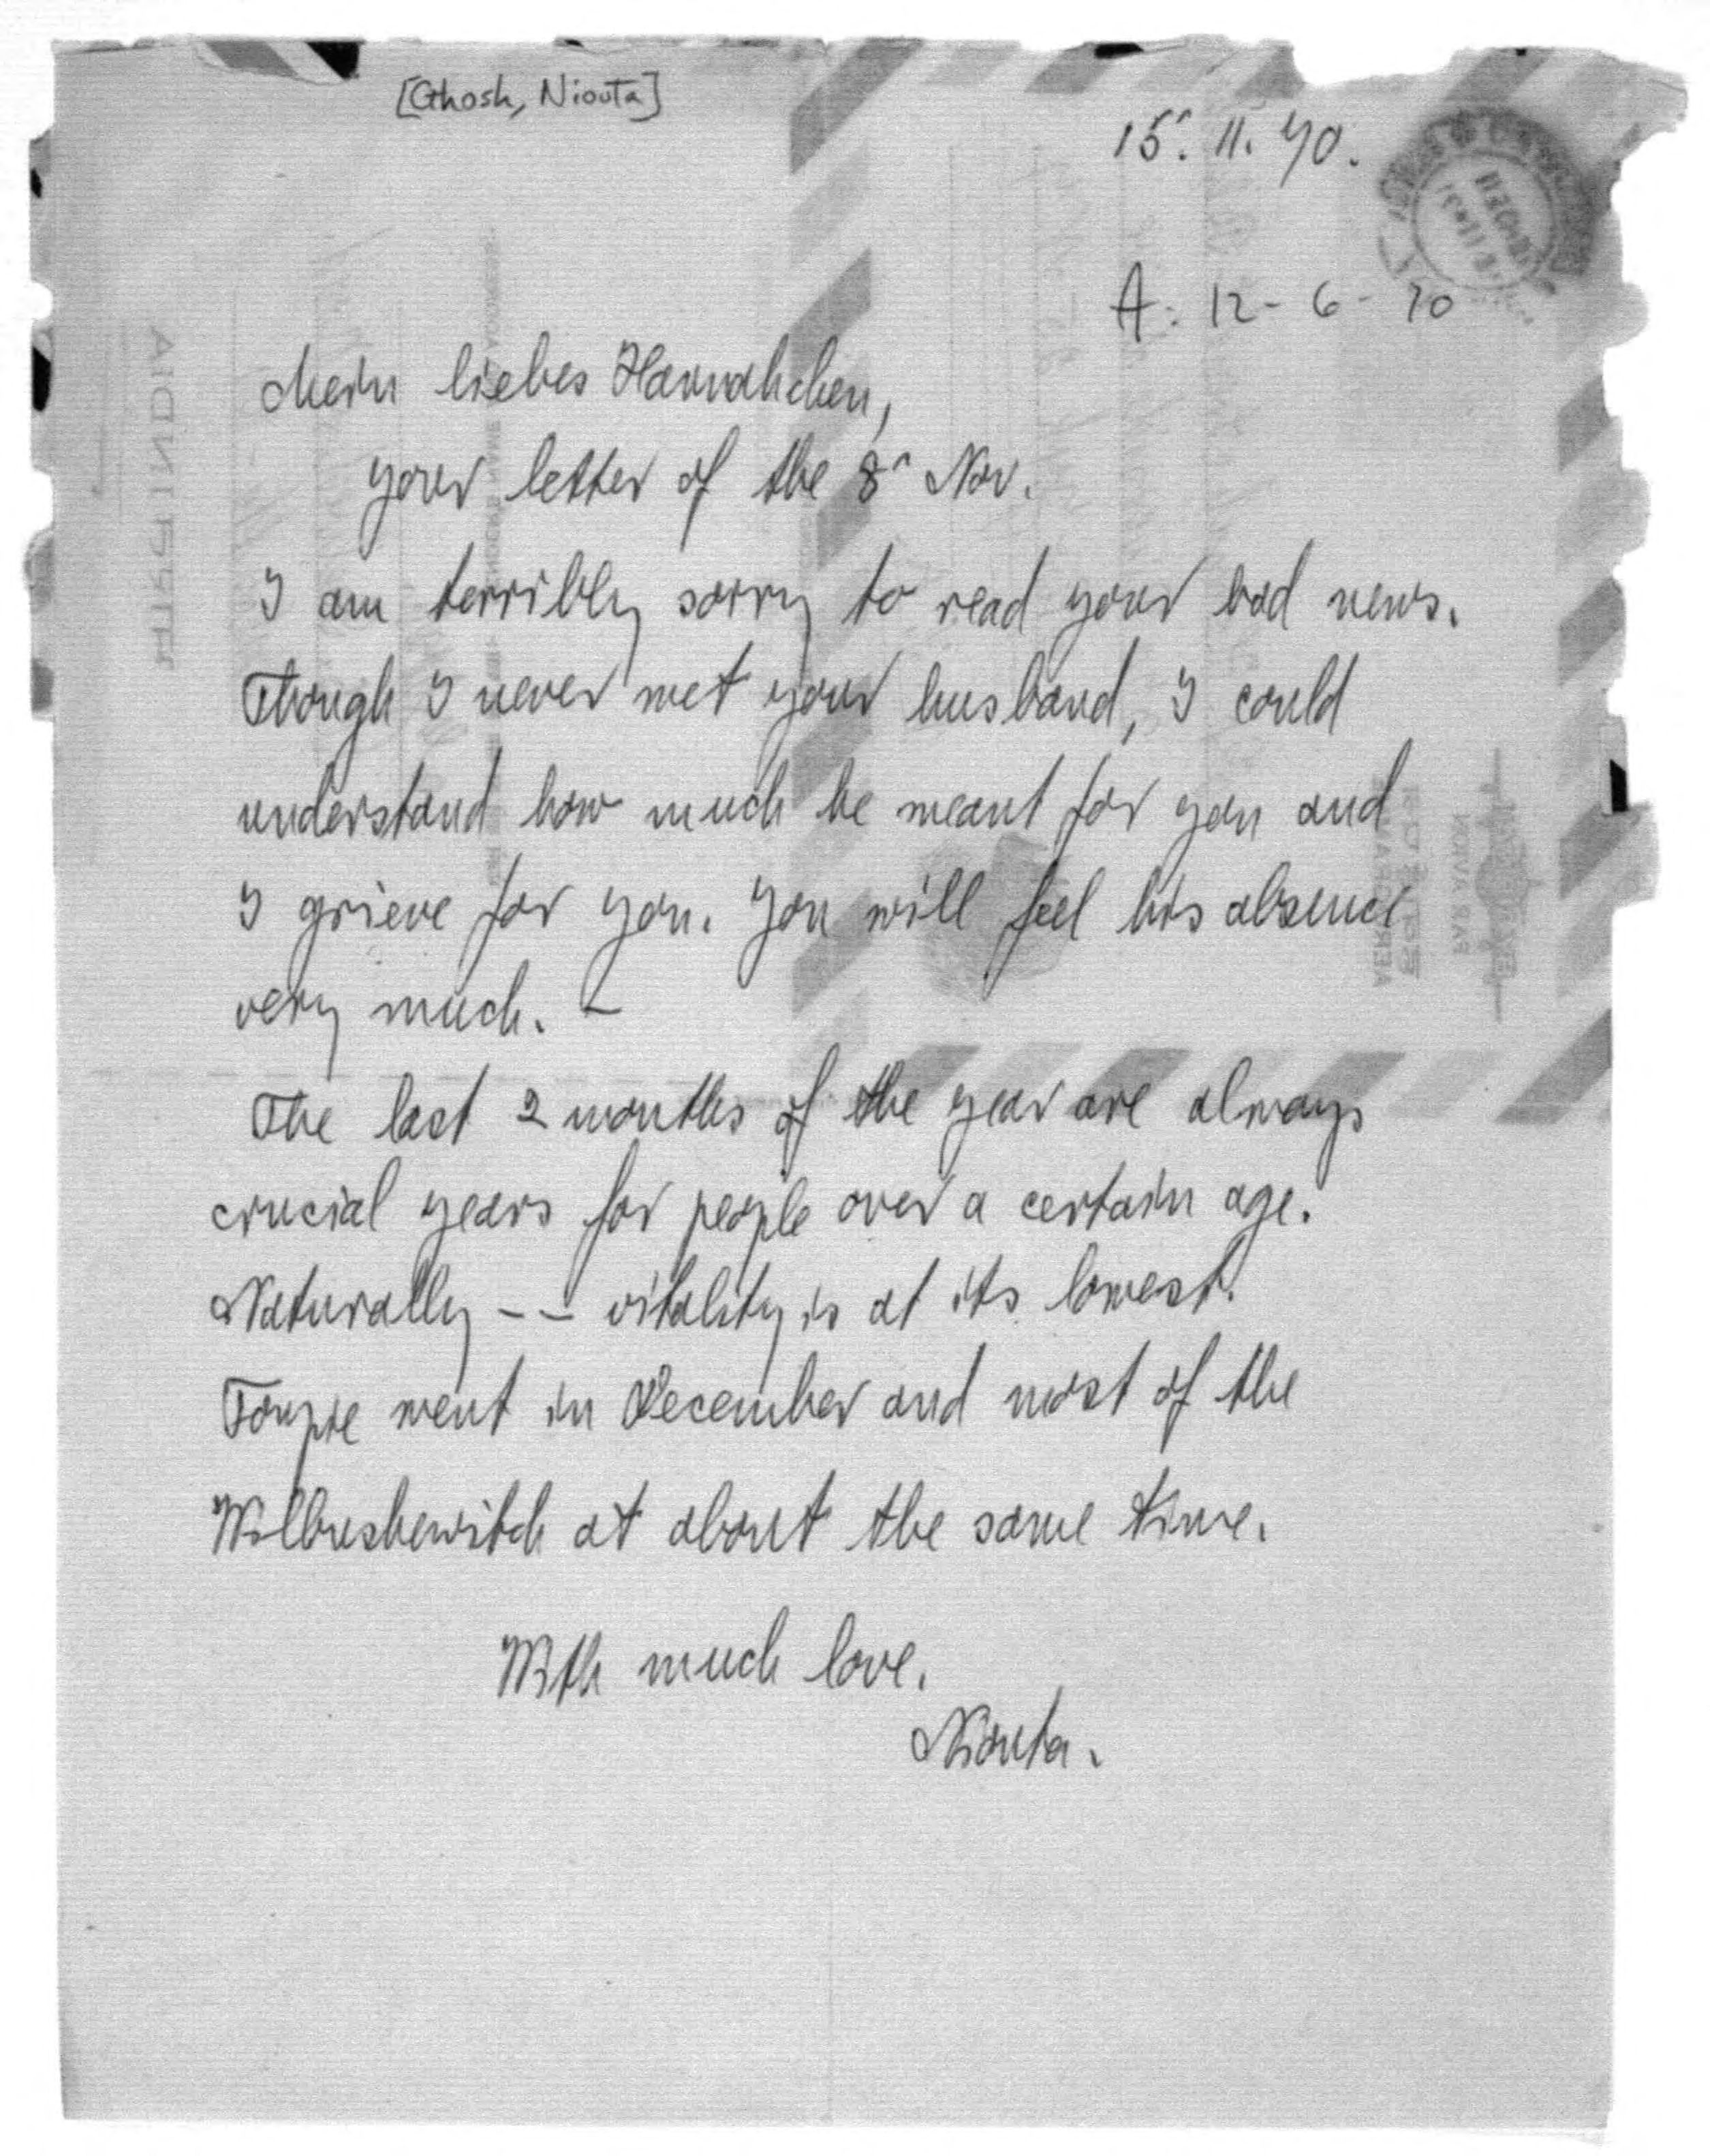 [Ghosh, Niouta]
15. 11. 70.
A: 12-6-70
Mein liebes Hannahchen,
your letter of the 8 Nov.
I am terribly sorry to read your bad news.
Though I never met your husband, I could
understand how much he meant for you and
I grieve for you. You will feel his absence
very much. –
The last 2 months of the year are always
crucial years for people over a certain age.
Naturally -- vitality is at its lowest.
Toupie went in December and most of the
Wilbushewitch at about the same time.
With much love.
Niouta.
INDIA
PAR AVION